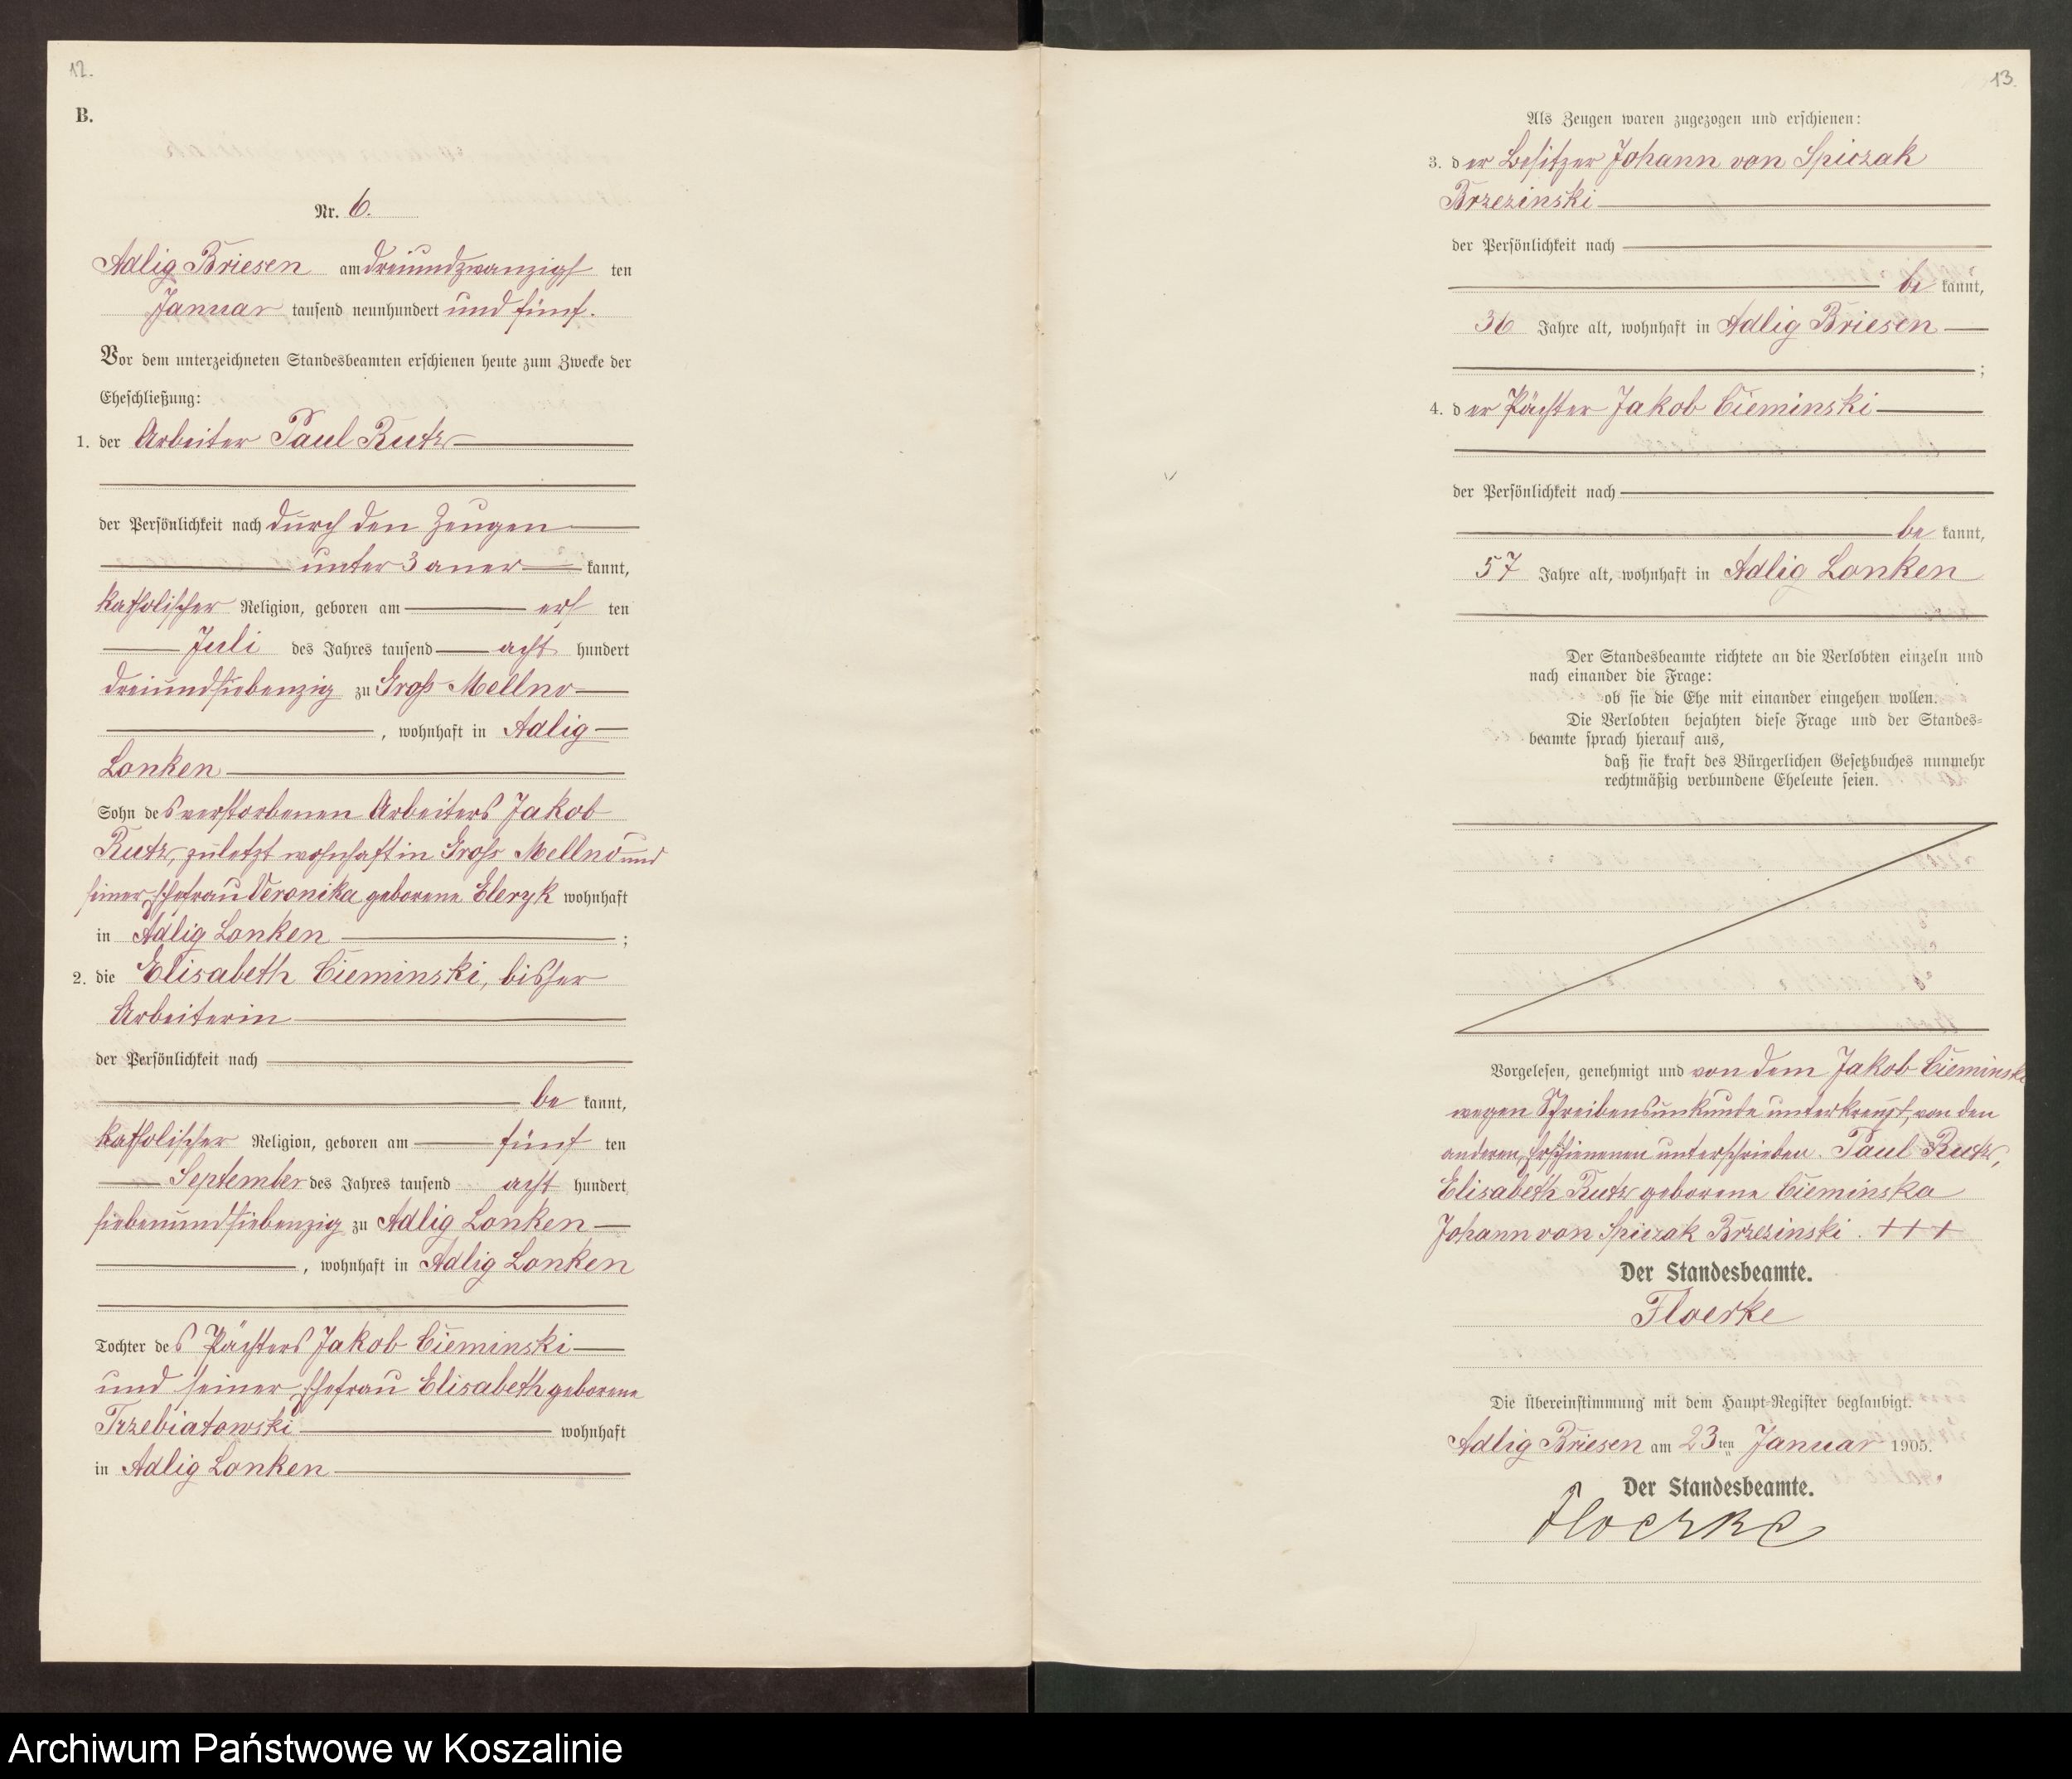 12.
B.
Nr. 6.
Adlig Briesen am dreiundzwanzigs ten
Januar tausend neunhundert und fünf.
Vor dem unterzeichneten Standesbeamten erschienen heute zum Zwecke der
Eheschließung:
1. der Arbeiter Paul Rutz
der Persönlichkeit nach durch den Zeugen
unter 3 aner kannt,
katholischer Religion, geboren am ers ten
Juli des Jahres tausend acht hundert
dreiundsiebenzig zu Groß Mellno
, wohnhaft in Adlig
Lonken
Sohn des verstorbenen Arbeiters Jakob
Rutz, zuletzt wohnhaft in Groß Mellno und
seiner Ehefrau Veronika geborene Eleryk wohnhaft
in Adlig Lonken ;
2. die Elisabeth Cieminski, bisher
Arbeiterin
der Persönlichkeit nach
be kannt,
katholischer Religion, geboren am fünf ten
September des Jahres tausend acht hundert
siebenundsiebenzig zu Adlig Lonken
, wohnhaft in Adlig Lonken
Tochter des Pächters Jakob Cieminski
und seiner Ehefrau Elisabeth geborene
Trzebiatowski wohnhaft
in Adlig Lonken
13.
Als Zeugen waren zugezogen und erschienen:
3. der Besitzer Johann von Spiczak
Brzezinski
der Persönlichkeit nach
be kannt,
36 Jahre alt, wohnhaft in Adlig Briesen
;
4. der Pächter Jakob Cieminski
der Persönlichkeit nach
be kannt,
57 Jahre alt, wohnhaft in Adlig Lonken
Der Standesbeamte richtete an die Verlobten einzeln und
nach einander die Frage:
ob sie die Ehe mit einander eingehen wollen.
Die Verlobten bejahten diese Frage und der Standes=
beamte sprach hierauf aus,
daß sie kraft des Bürgerlichen Gesetzbuches nunmehr
rechtmäßig verbundene Eheleute seien.
Vorgelesen, genehmigt und von dem Jakob Cieminski
wegen Schreibensunkunde unterkreuzt, von den
anderen Erschienenen unterschrieben. Paul Rutz,
Elisabeth Rutz geborene Cieminska
Johann von Spiczak Brzezinski. +++
Der Standesbeamte.
Floerke
Die Übereinstimmung mit dem Haupt-Register beglaubigt.
Adlig Briesen am 23ten Januar 1905.
Der Standesbeamte.
Floerke
Archiwum Państwowe w Koszalinie